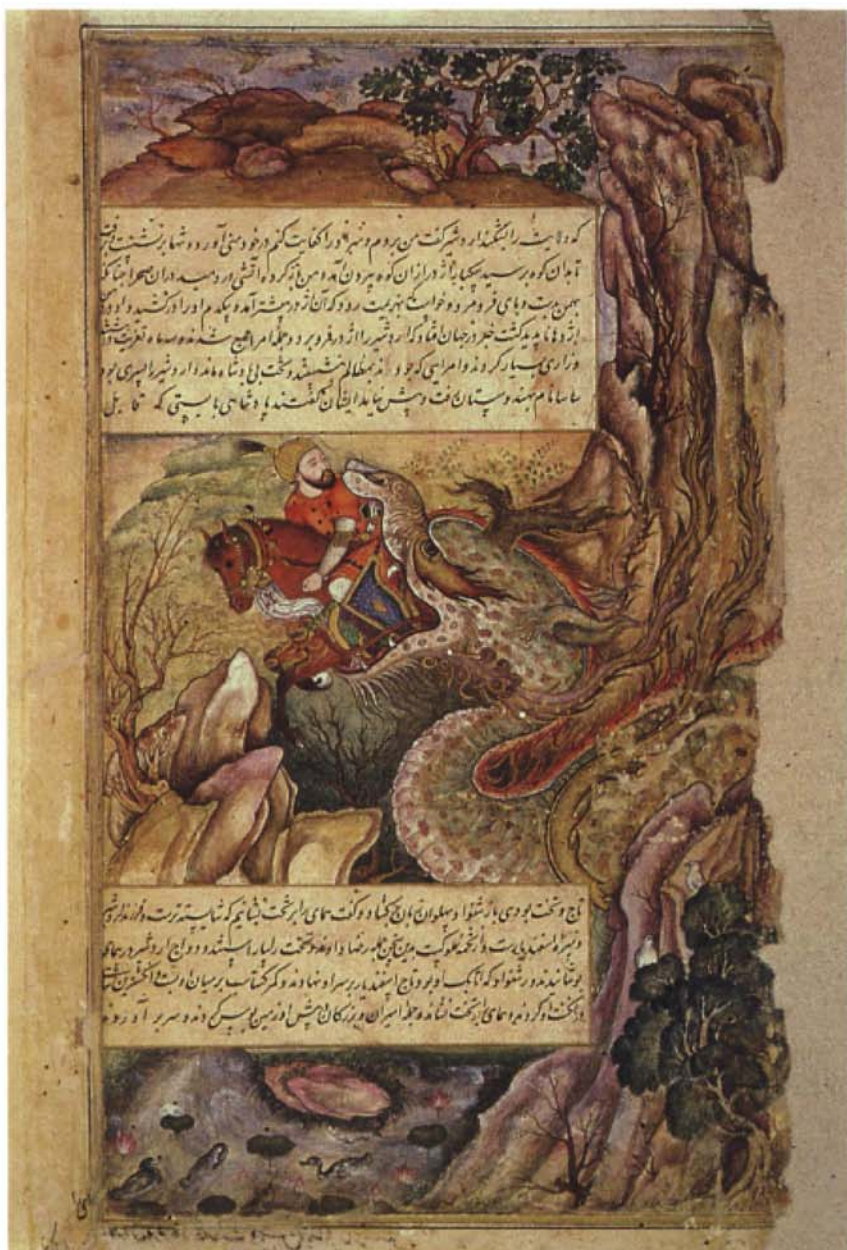 که ولایت را بگذارد و شیر گفت من بروم و شر او را کفایت کنم در خود منی آورد و تنها برنشست و برفت
تا بدان کوه برسید یکباره اژدر از آن کوه بیرون آمد و من باز کرده آتشی در دمید در آن صحرا چنانکه
بهمن دست و پای و خواست که بهزیمت رود که آن اژدر پیشتر آمد و بیکدم او را در کشید و
اژدها ناپدید گشت خبر در جهان افتاد که اردشیر را اژدر فرو برد و جمله امرا جمع شدند و سه ماه تعزیت داشتند
و زاری بسیار کردند و امرایی که بمظالم نشستند و تخت بی پادشاه ماند اردشیر را پسری بود
ساسا نام بهندوستان رفت و پیش نیامد ایشان گفتند پادشاهی بایستی که قابل
تاج و تخت بودی باز شغوا و پهلوان جهان و گفت همای را بر تخت نشانیم که شایسته ترست و فرزند اردشیر
و نبیره اسفندیارست و از تخمه ملوکست بدین سخن جمله رضا دادند و تخت را بیاراستند و دواج اردشیر در همای
پوشانیدند و شغوا که اتابک او بود تاج اسفندیار بر سر او نهاد و کمر گشتاسب بر میان او بست و انگشترین
در انگشت او کردند و همای را بر تخت نشاند و جمله امیران و بزرگان در پیش او زمین بوس کردند و سر بر آوردند